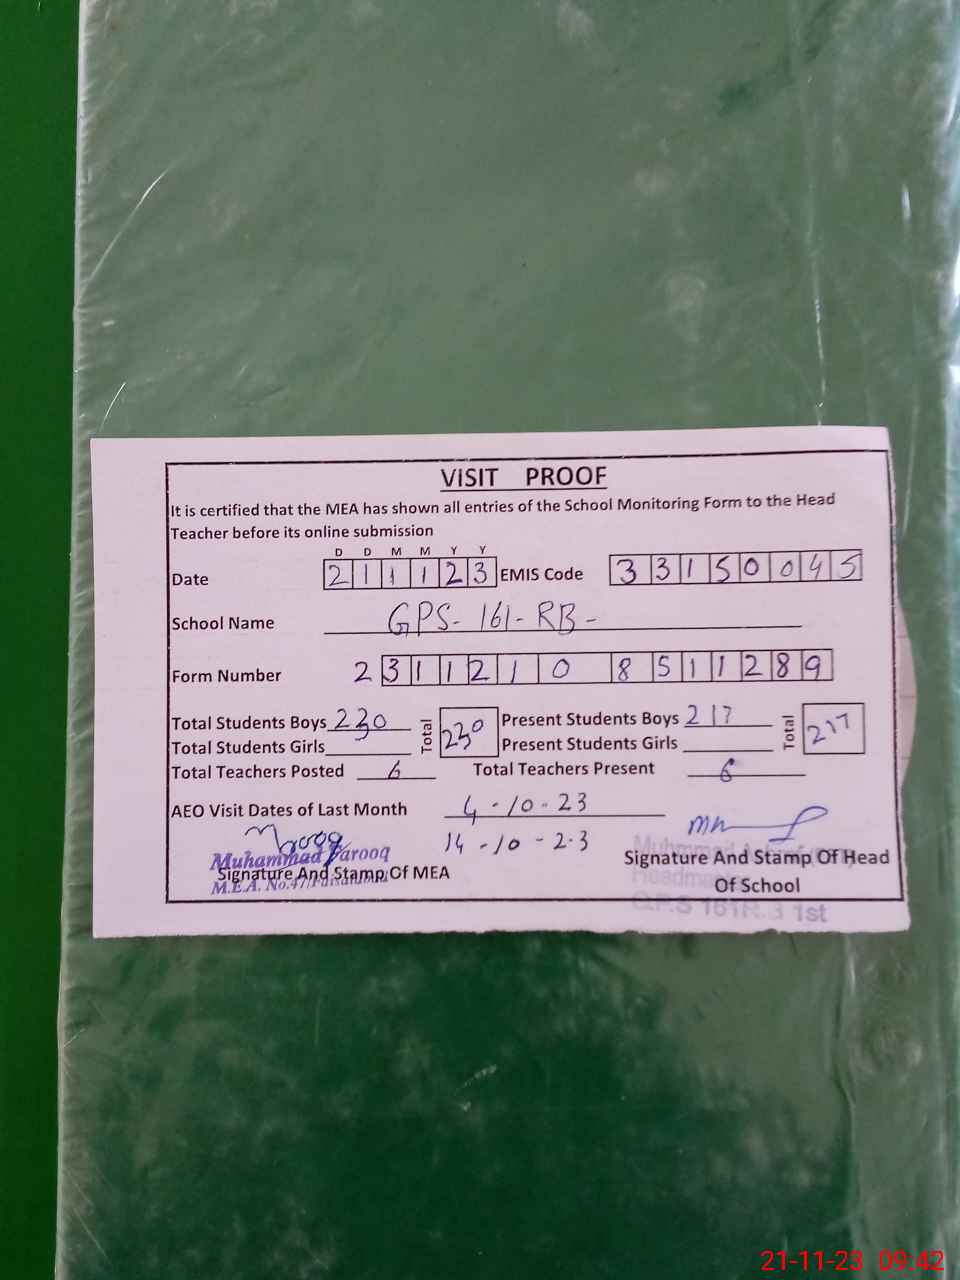 VISIT PROOF
It is certified that the MEA has shown all entries of the School Monitoring Form to the Head
Teacher before its online submission
D D M M Y Y
Date 211123 EMIS Code 33150045
School Name GPS- 161-RB-
Form Number 23112108511289
Total Students Boys 230 Total 230 Present Students Boys 217 Total 217
Total Students Girls Present Students Girls
Total Teachers Posted 6 Total Teachers Present 6
AEO Visit Dates of Last Month 4-10-23
14-10-23
Muhammad Farooq
Signature And Stamp Of MEA
M.E.A. No.47/Faisalabad
Signature And Stamp Of Head
Headmaster
Of School
G.P.S 161R.B 1st
21-11-23 09:42